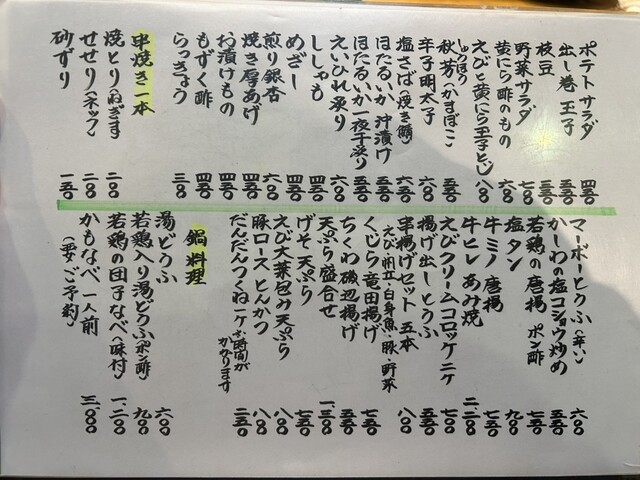 ポテトサラダ 四五〇
出し巻 玉子 五五〇
枝豆 三五〇
野菜サラダ 七五〇
黄にら酢のもの 六〇〇
えびと黄にら玉子とじ 八〇〇
秋芳かまぼこ 五五〇
辛子明太子 六〇〇
塩さば(焼き鯖) 六五〇
ほたるいか 沖漬け 五五〇
ほたるいか一夜干炙り 五五〇
えいひれ炙り 六〇〇
ししゃも 四五〇
めざし 四五〇
煎り銀杏 六〇〇
焼き厚あげ 四五〇
お漬けもの 四五〇
もずく酢 四五〇
らっきょう 三〇〇
串焼き一本
焼とり(ねぎま) 二〇〇
せせり(ネック) 二〇〇
砂ずり 一五〇
マーボーとうふ(辛い) 六〇〇
かしわの塩コショウ炒め 五五〇
若鶏の唐揚 ポン酢 七五〇
塩タン 九〇〇
牛ミノ 唐揚 七五〇
牛ヒレ あみ焼 二、二〇〇
えびクリームコロッケ二ケ 五〇〇
揚げ出しとうふ 五五〇
串揚げセット 五本 八〇〇
えび・帆立・白身魚・豚・野菜
くじら 竜田揚げ 七五〇
ちくわ 磯辺揚げ 五五〇
天ぷら 盛合せ 一、三〇〇
げそ 天ぷら 七五〇
えび大葉包み天ぷら 八〇〇
豚ロース とんかつ 八〇〇
だんだんつくね一ケ お時間がかかります 二五〇
鍋料理
湯どうふ 六〇〇
若鶏入り湯どうふ(ポン酢) 九〇〇
若鶏の団子なべ(味付) 一、二〇〇
かもなべ 一人前 三、〇〇〇
(要ご予約)